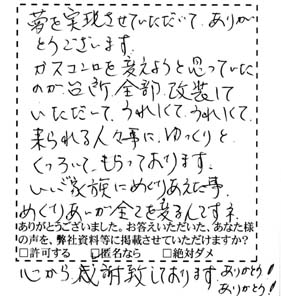 夢を実現させていただいて、ありが
とうございます。
ガスコンロを変えようと思っていた
のが、台所、全部、改装して
いただいて、うれしくて、うれしくて、
来られる人々事に、ゆっくりと、
くつろいで、もらっております。
いい家族にめぐりあえた事、
めぐりあいが全てを変るんですネ
ありがとうございました。お答えいただいた、あなた様
の声を、弊社資料等に掲載させていただけますか?
□許可する □匿名なら □絶対ダメ
心から感謝致しております。ありがとう!
ありがとう!